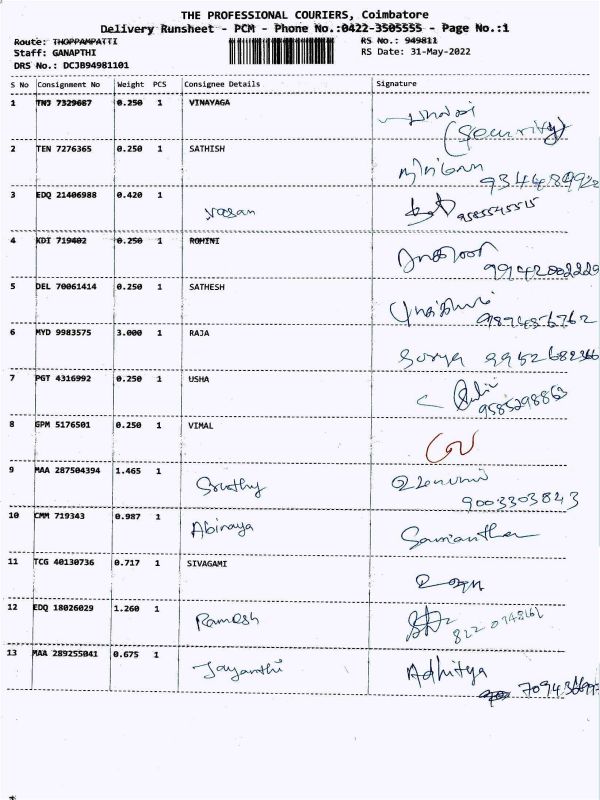 THE PROFESSIONAL COURIERS, Coimbatore
Delivery Runsheet - PCM - Phone No.:0422-3505555 - Page No.:1
Route: THOPPAMPATTI
RS No.: 949811
Staff: GANAPTHI
RS Date: 31-May-2022
DRS No.: DCJB94981101
S No Consignment No Weight PCS Consignee Details Signature
1 TNJ 7329687 0.250 1 VINAYAGA
(Security
2 TEN 7276365 0.250 1 SATHISH
3 EDQ 21406988 0.420 1 Vasan
4 KDI 719402 0.250 1 ROHINI
5 DEL 70061414 0.250 1 SATHESH
6 MYD 9983575 3.000 1 RAJA Surya
7 PGT 4316992 0.250 1 USHA
9585298863
8 GPM 5176501 0.250 1 VIMAL
9 MAA 287504394 1.465 1 Sruthy
9003303843
10 CMM 719343 0.987 1 Abinaya Samantha
11 TCG 40130736 0.717 1 SIVAGAMI
12 EDQ 18026029 1.260 1 Ramesh
13 MAA 289255041 0.675 1 Jayanthi Adhitya